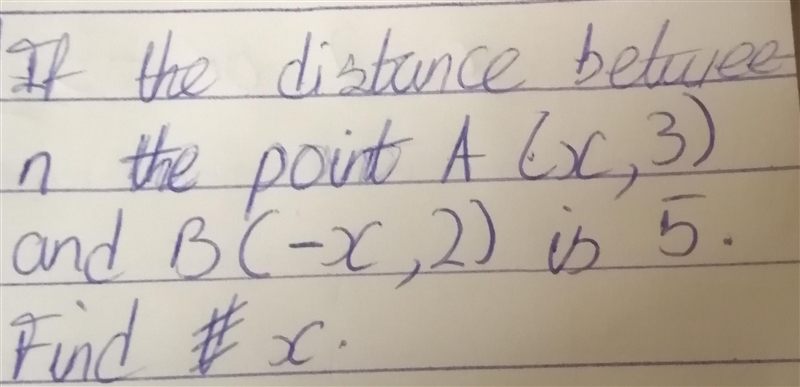 If the distance betwee
n the point A (x, 3)
and B(-x, 2) is 5.
Find x.